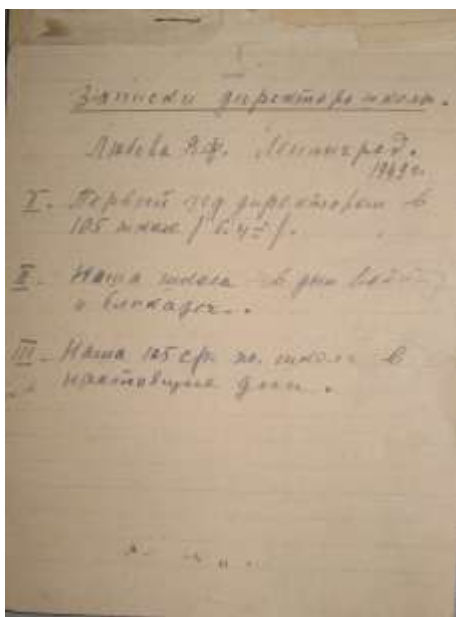 Записки директора школы.
Любова В.Ф. Ленинград.
1949 г.
I. Первый год директором в
105 школе
II. Наша школа в дни войны
и блокады.
III. Наша 105 ср. школа в
настоящие дни.